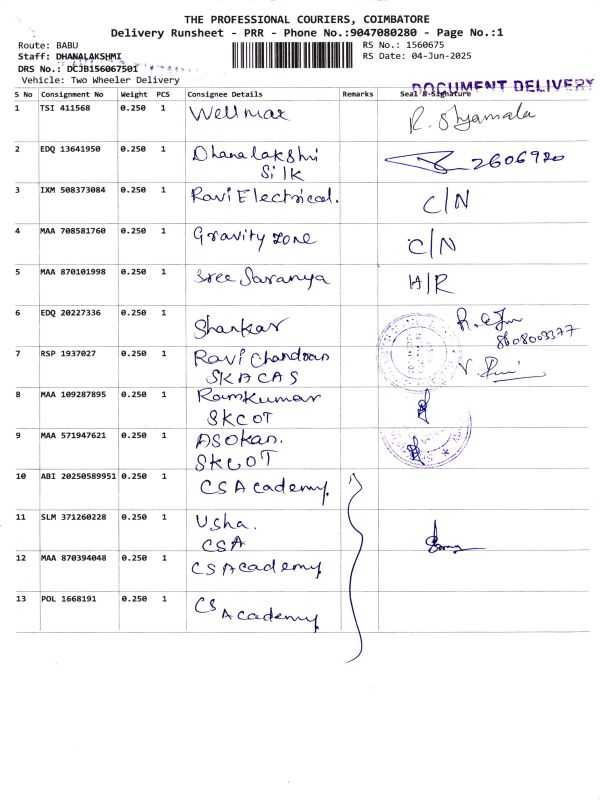 THE PROFESSIONAL COURIERS, COIMBATORE
Delivery Runsheet - PRR - Phone No.:9047080280 - Page No.:1
Route: BABU
RS No.: 1560675
Staff: DHANALAKSHMI
RS Date: 04-Jun-2025
DRS No.: DCJB156067501
Vehicle: Two Wheeler Delivery
DOCUMENT DELIVERY
S No Consignment No Weight PCS Consignee Details Remarks Seal & Signature
1 TSI 411568 0.250 1 Wellmax R. Shyamala
2 EDQ 13641950 0.250 1 Dhanalakshmi
Silk
3 IXM 508373084 0.250 1 Ravi Electrical. C/N
4 MAA 708581760 0.250 1 Gravity zone C/N
5 MAA 870101998 0.250 1 Sree Saranya H/R
6 EDQ 20227336 0.250 1 Shankar
8608003377
7 RSP 1937027 0.250 1 Ravi Chandran
SKACAS
8 MAA 109287895 0.250 1 Ramkumar
SKCOT
9 MAA 571947621 0.250 1 Asokan.
SKCOT
10 ABI 20250589951 0.250 1 CS Academy.
11 SLM 371260228 0.250 1 Usha.
CSA
12 MAA 870394048 0.250 1 CS Academy
13 POL 1668191 0.250 1 CS
Academy